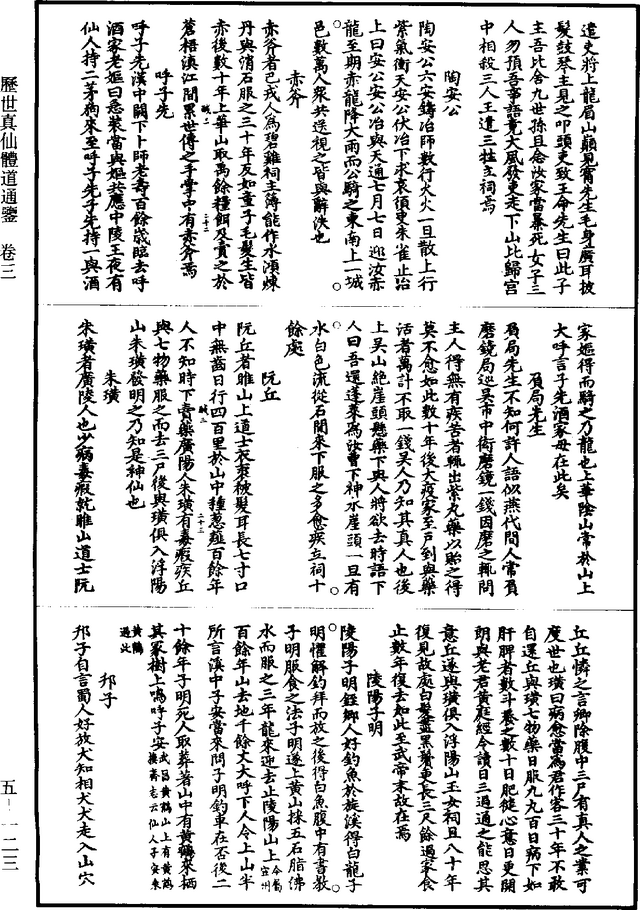 歷世真仙體道通鑒 卷三
五-一二三
遣吏將上龍眉山巔見甯先生毛身廣耳披
髮鼓琴主見之叩頭吏致王命先生曰此子
主吾比舍九世孫且念汝家當暴死女子三
人勿預吾事語竟大風發吏走下山比歸宮
中相殺三人王遣三牲立祠焉
陶安公
陶安公六安鑄冶師數行火火一旦散上行
紫氣衝天安公伏冶下求哀須臾朱雀止冶
上曰安公安公冶與天通七月七日迎汝赤
龍至期赤龍降大雨而公騎之東南上一城
邑數萬人眾共送視之皆與辭決也
赤斧
赤斧者巴戎人為碧雞祠主簿能作水澒煉
丹與消石服之三十年反如童子毛髮生皆
赤後數十年上華山取禹餘糧餌及賣之於
蒼梧滇江間累世傳之手掌中有赤斧焉
呼子先
呼子先漢中關下卜師老壽百餘歲臨去呼
酒家老嫗曰急裝當與嫗共應中陵王夜有
仙人持二茅狗來至呼子先子先持一與酒
家嫗得而騎之乃龍也上華陰山常於山上
大呼言子先酒家母在此矣
負局先生
負局先生不知何許人語似燕代間人常負
磨鏡局巡吳市中衒磨鏡一錢因磨之輒問
主人得無有疾苦者輒出紫丸藥以貽之得
莫不愈如此數十年後大疫家至戶到與藥
活者萬計不取一錢吳人乃知其真人也後
上吳山絕崖頭懸藥下與人將欲去時語下
人曰吾還蓬萊為汝曹下神水崖頭一旦有
水白色流從石間來下服之多愈疾立祠十
餘處
阮丘
阮丘者睢山上道士衣裘被髮耳長七寸口
中無齒日行四百里於山中種蔥薤百餘年
人不知時下賣藥廣陽人朱璜有毒瘕疾丘
與七物藥服之而去三尸後與璜俱入浮陽
山朱璜發明之乃知是神仙也
朱璜
朱璜者廣陵人也少病毒瘕就睢山道士阮
丘丘憐之言卿除腹中三尸有真人之業可
度世也璜曰病愈當為君作客三十年不敢
自還丘與璜七物藥日服九九百日病下如
肝脾者數斗養之數十日肥健心意日更開
朗與老君黃庭經令讀日三過通之能思其
意丘遂與璜俱入浮陽山玉女祠且八十年
復見故處白髮盡黑鬢更長三尺餘過家食
止數年復去如此至武帝末故在焉
陵陽子明
陵陽子明銍鄉人好釣魚於旋溪得白龍子
明懼解釣拜而放之後得白魚腹中有書教
子明服食之法子明遂上黃山採五石脂沸
水而服之三年龍來迎去止陵陽山上今屬宣州
百餘年山去地千餘丈大呼下人令上山半
所言溪中子安當來問子明釣車在否後二
十餘年子明死人取葬著山中有黃鶴來栖
其冢樹上鳴呼子安武昌黃鶴山上有黃鶴樓齊志云仙人子安乘
黃鶴過此
邦子
邦子自言蜀人好放犬知相犬犬走入山穴